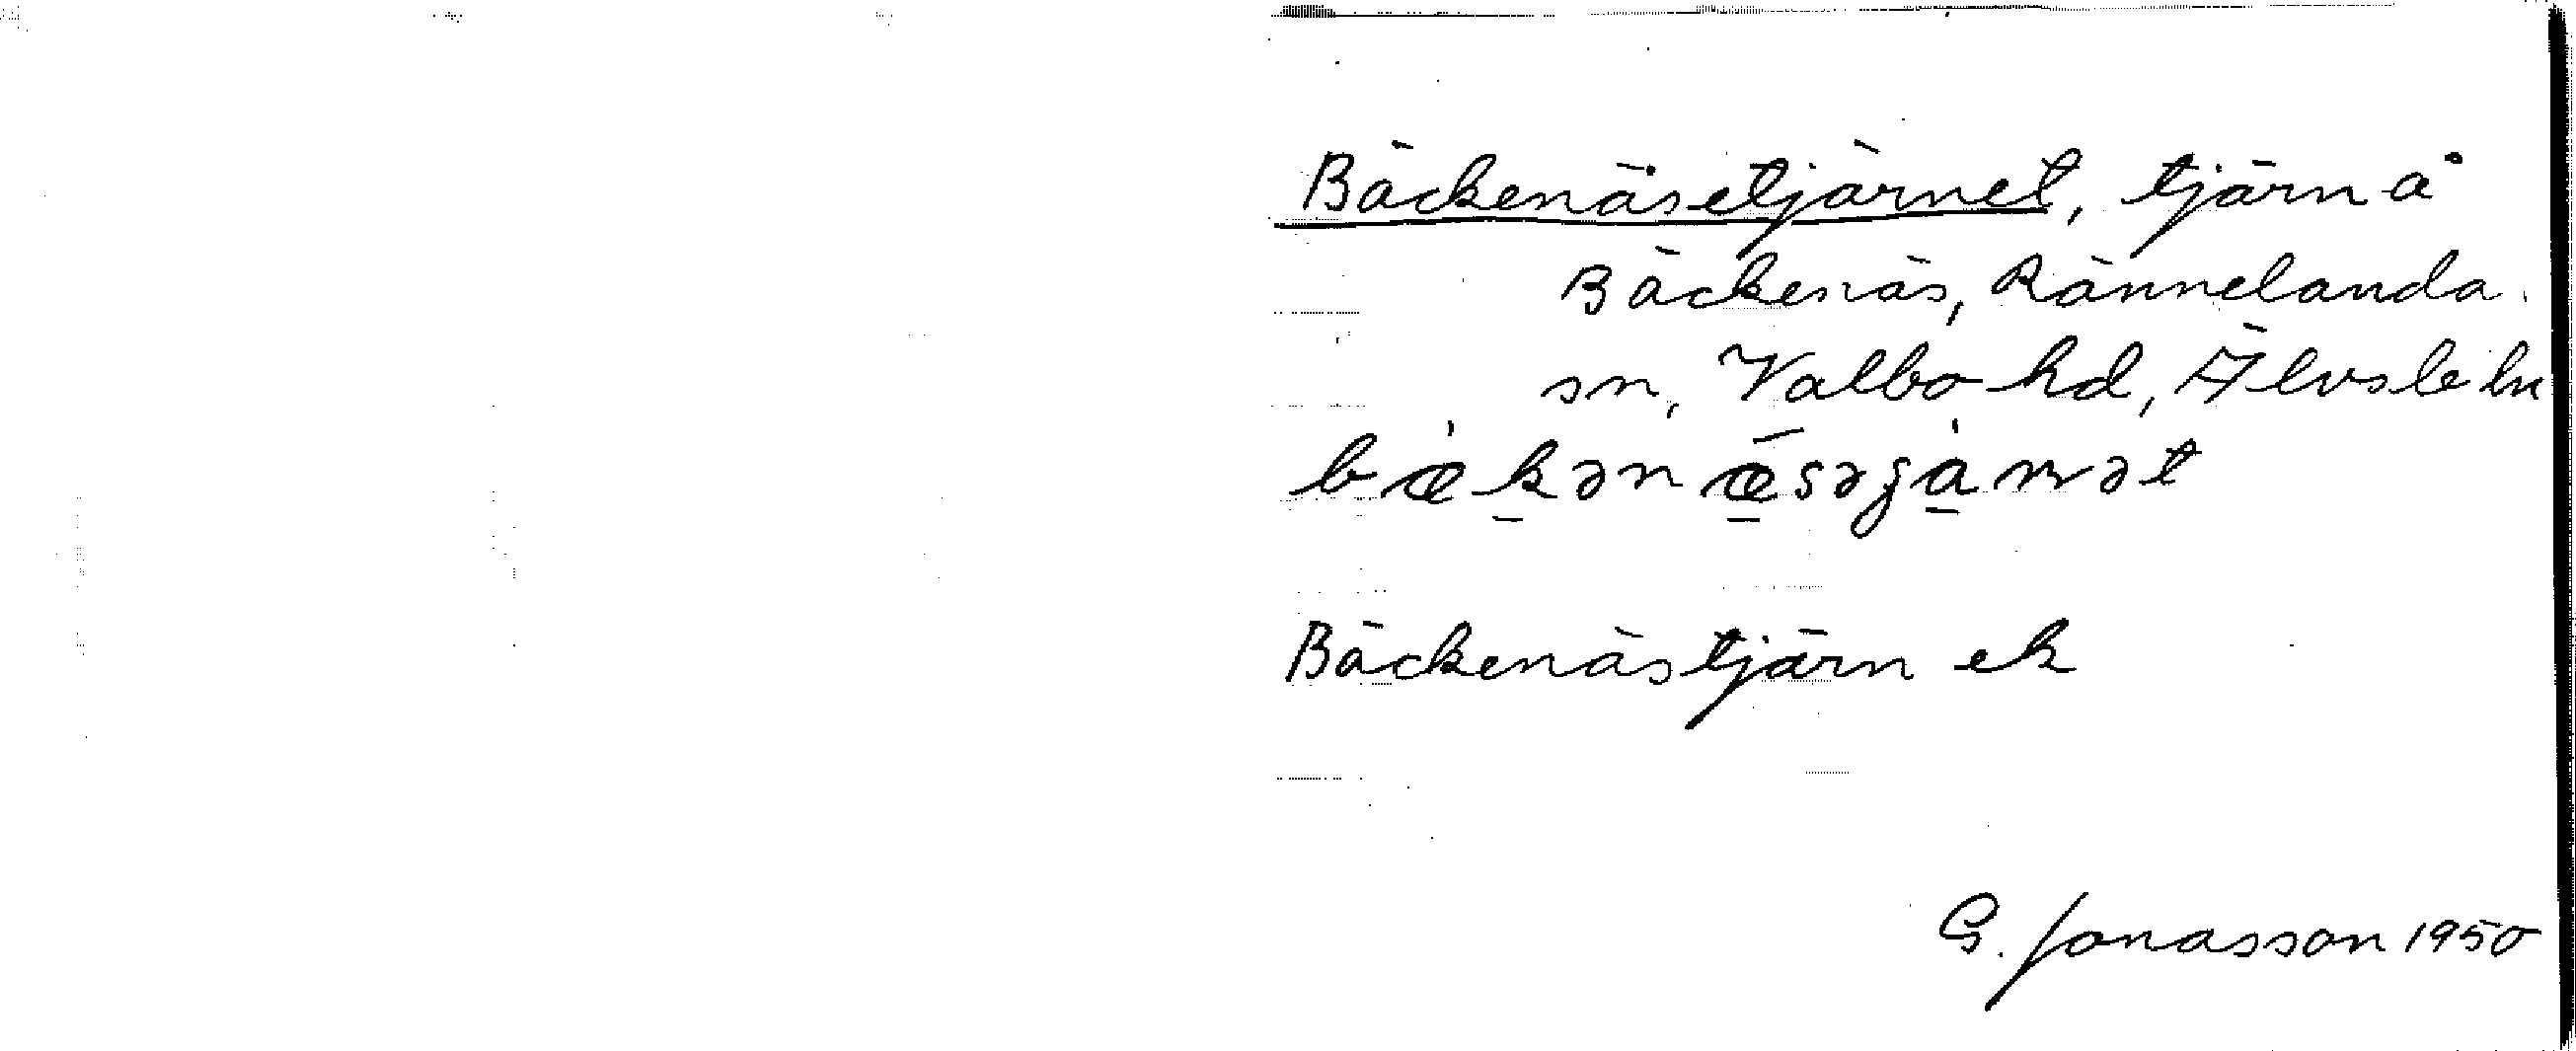 Bäckenäsetjärnet, tjärn å
Bäckenäs, Rännelanda
sn, Valbo hd, Älvsb ln
Bäckenästjärn ek
G. Jonasson 1950